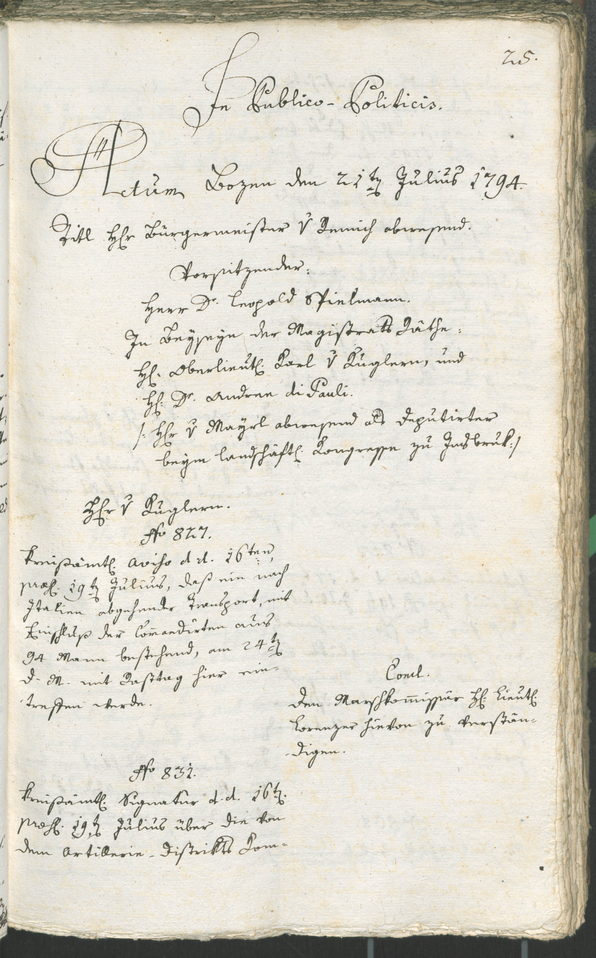 25.
In Publico-Politicis.
Actum Bozen den 21ten Julius 1794.
Titl Hr Bürgermeister v Remich abwesend.
Vorsitzender.
Herr Dr. Leopold Spielmann.
In Beyseyn der Magistrats Räthe:
H: Oberlieut: Karl v Kuglern, und
H: Dr. Andreas di Pauli.
/: Hr v Mayrl abwesend als Deputirter
beym landschäftl. Kongresse zu Insbruk:/
Hr v Kuglern.
No 827.
Kreisämtl. Aviso d.d. 16ten,
præs. 19ten Julius, daß ein nach
Italien abgehender Transport, mit
Einschluß der Com̄andirten aus
94 Mann bestehend, am 24ten
d. M. mit Rasttag hier ein-
treffen werde.
Concl.
Den Marschkom̄issär H: Lieut:
Lorenzer hievon zu verstän-
digen.
No 831.
Kreisämtl. Signatur d.d. 16ten
præs. 19ten Julius über die von
dem Artillerie-Distrikts Kom-